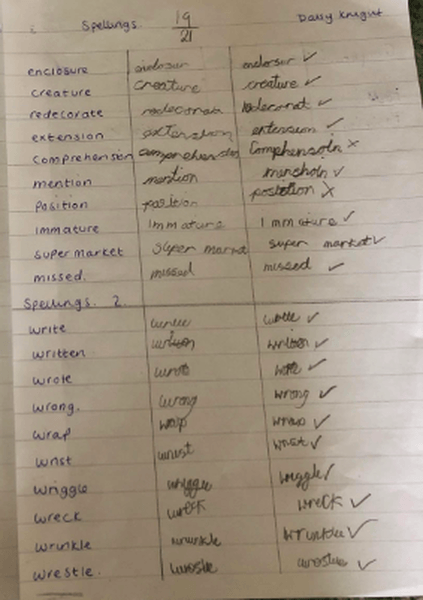 Spellings 19/21 Daisy Knight
enclosure endosur endosur ✓
creature creature creature ✓
redecorate redeconat ✓
extension extension extension ✓
comprehension comprehension Comphensoln ×
mention mention mencholn ✓
Position position postotion ×
immature immature immature ✓
super market super market super market ✓
missed. missed missed ✓
Spellings. 2.
write write ✓
written written written ✓
wrote wrote ✓
wrong. wrong wrong ✓
wrap wrap wrap ✓
wrist wrist wrist ✓
wriggle wriggle wriggle ✓
wreck wreck wreck ✓
wrinkle wrinkle wrinkle ✓
wrestle. ✓